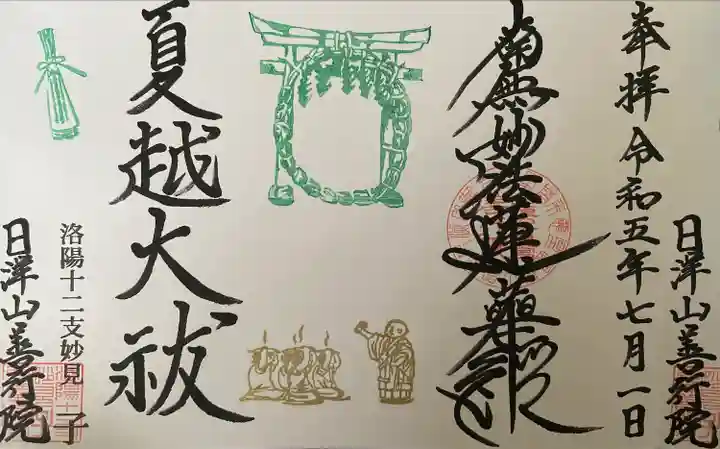 奉拝 令和五年七月一日
日洋山善行院
南無妙法蓮華経
夏越大祓
洛陽十二支妙見 子
日洋山善行院